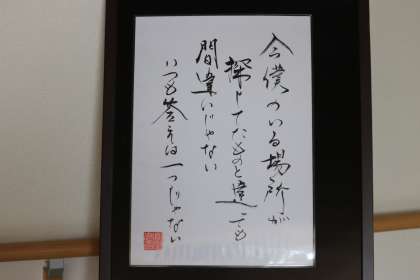 今僕のいる場所が
探してたのと違っても
間違いじゃない
いつも答えは一つじゃない